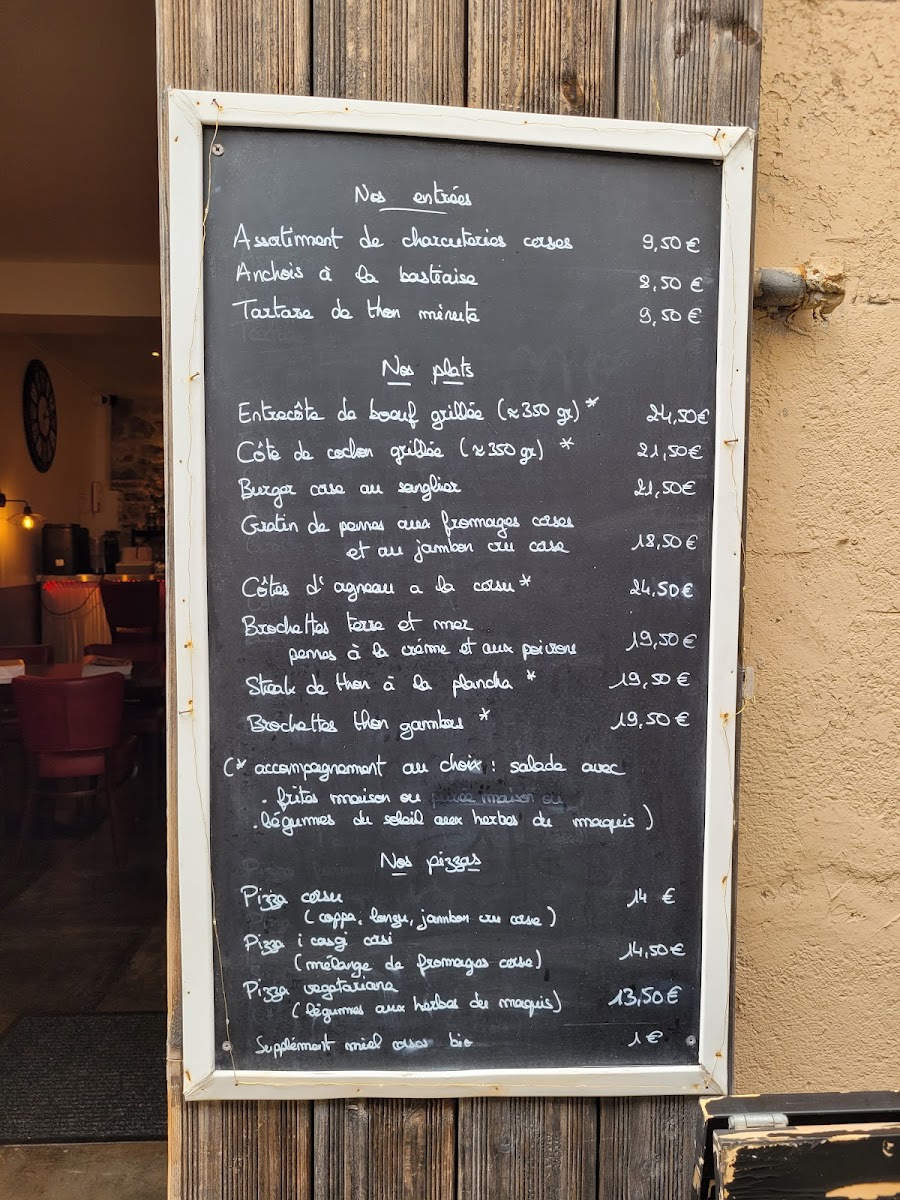 Nos entrées
Assortiment de charcuteries corses 9,50 €
Anchois à la bastiaise 8,50 €
Tartare de thon minute 9,50 €
Nos plats
Entrecôte de boeuf grillée (≈350 gr)* 24,50€
Côte de cochon grillée (≈350 gr) * 21,50€
Burger corse au sanglier 21,50€
Gratin de pennes aux fromages corses
et au jambon cru corse 18,50€
Côtes d'agneau a la corsu* 24,50€
Brochettes terre et mer
pennes à la crème et aux poivrons 19,50€
Steak de thon à la plancha * 19,50€
Brochettes thon gambas * 19,50€
(* accompagnement au choix : salade avec
. frites maison ou purée maison ou
. légumes du soleil aux herbes du maquis )
Nos pizzas
Pizza corsu 14 €
(coppa, lonzu, jambon cru corse)
Pizza i casgi casi 14,50€
(mélange de fromages corse)
Pizza vegetariana 13,50€
(légumes aux herbes du maquis)
Supplément miel corse bio 1 €